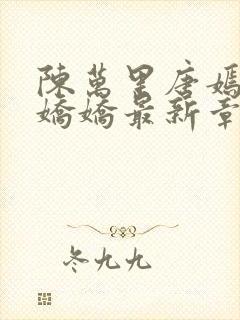 陳萬里唐嫣
嬌嬌最新章
冬九九